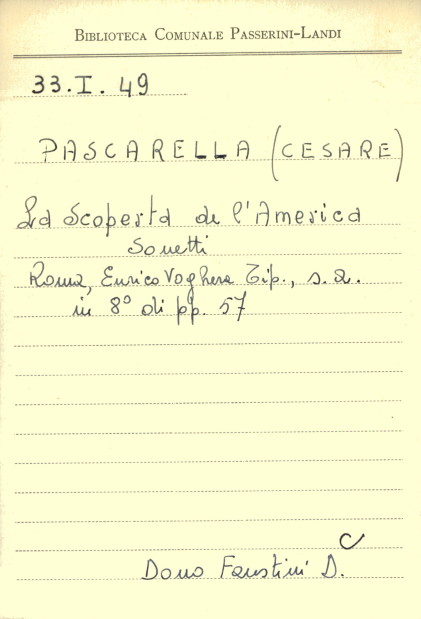 Biblioteca Comunale Passerini-Landi
33.I.49
PASCARELLA (CESARE)
La Scoperta de l'America
Sonetti
Roma, Enrico Voghera Tip., s.a.
in 8° di pp. 57
C
Dono Faustini D.